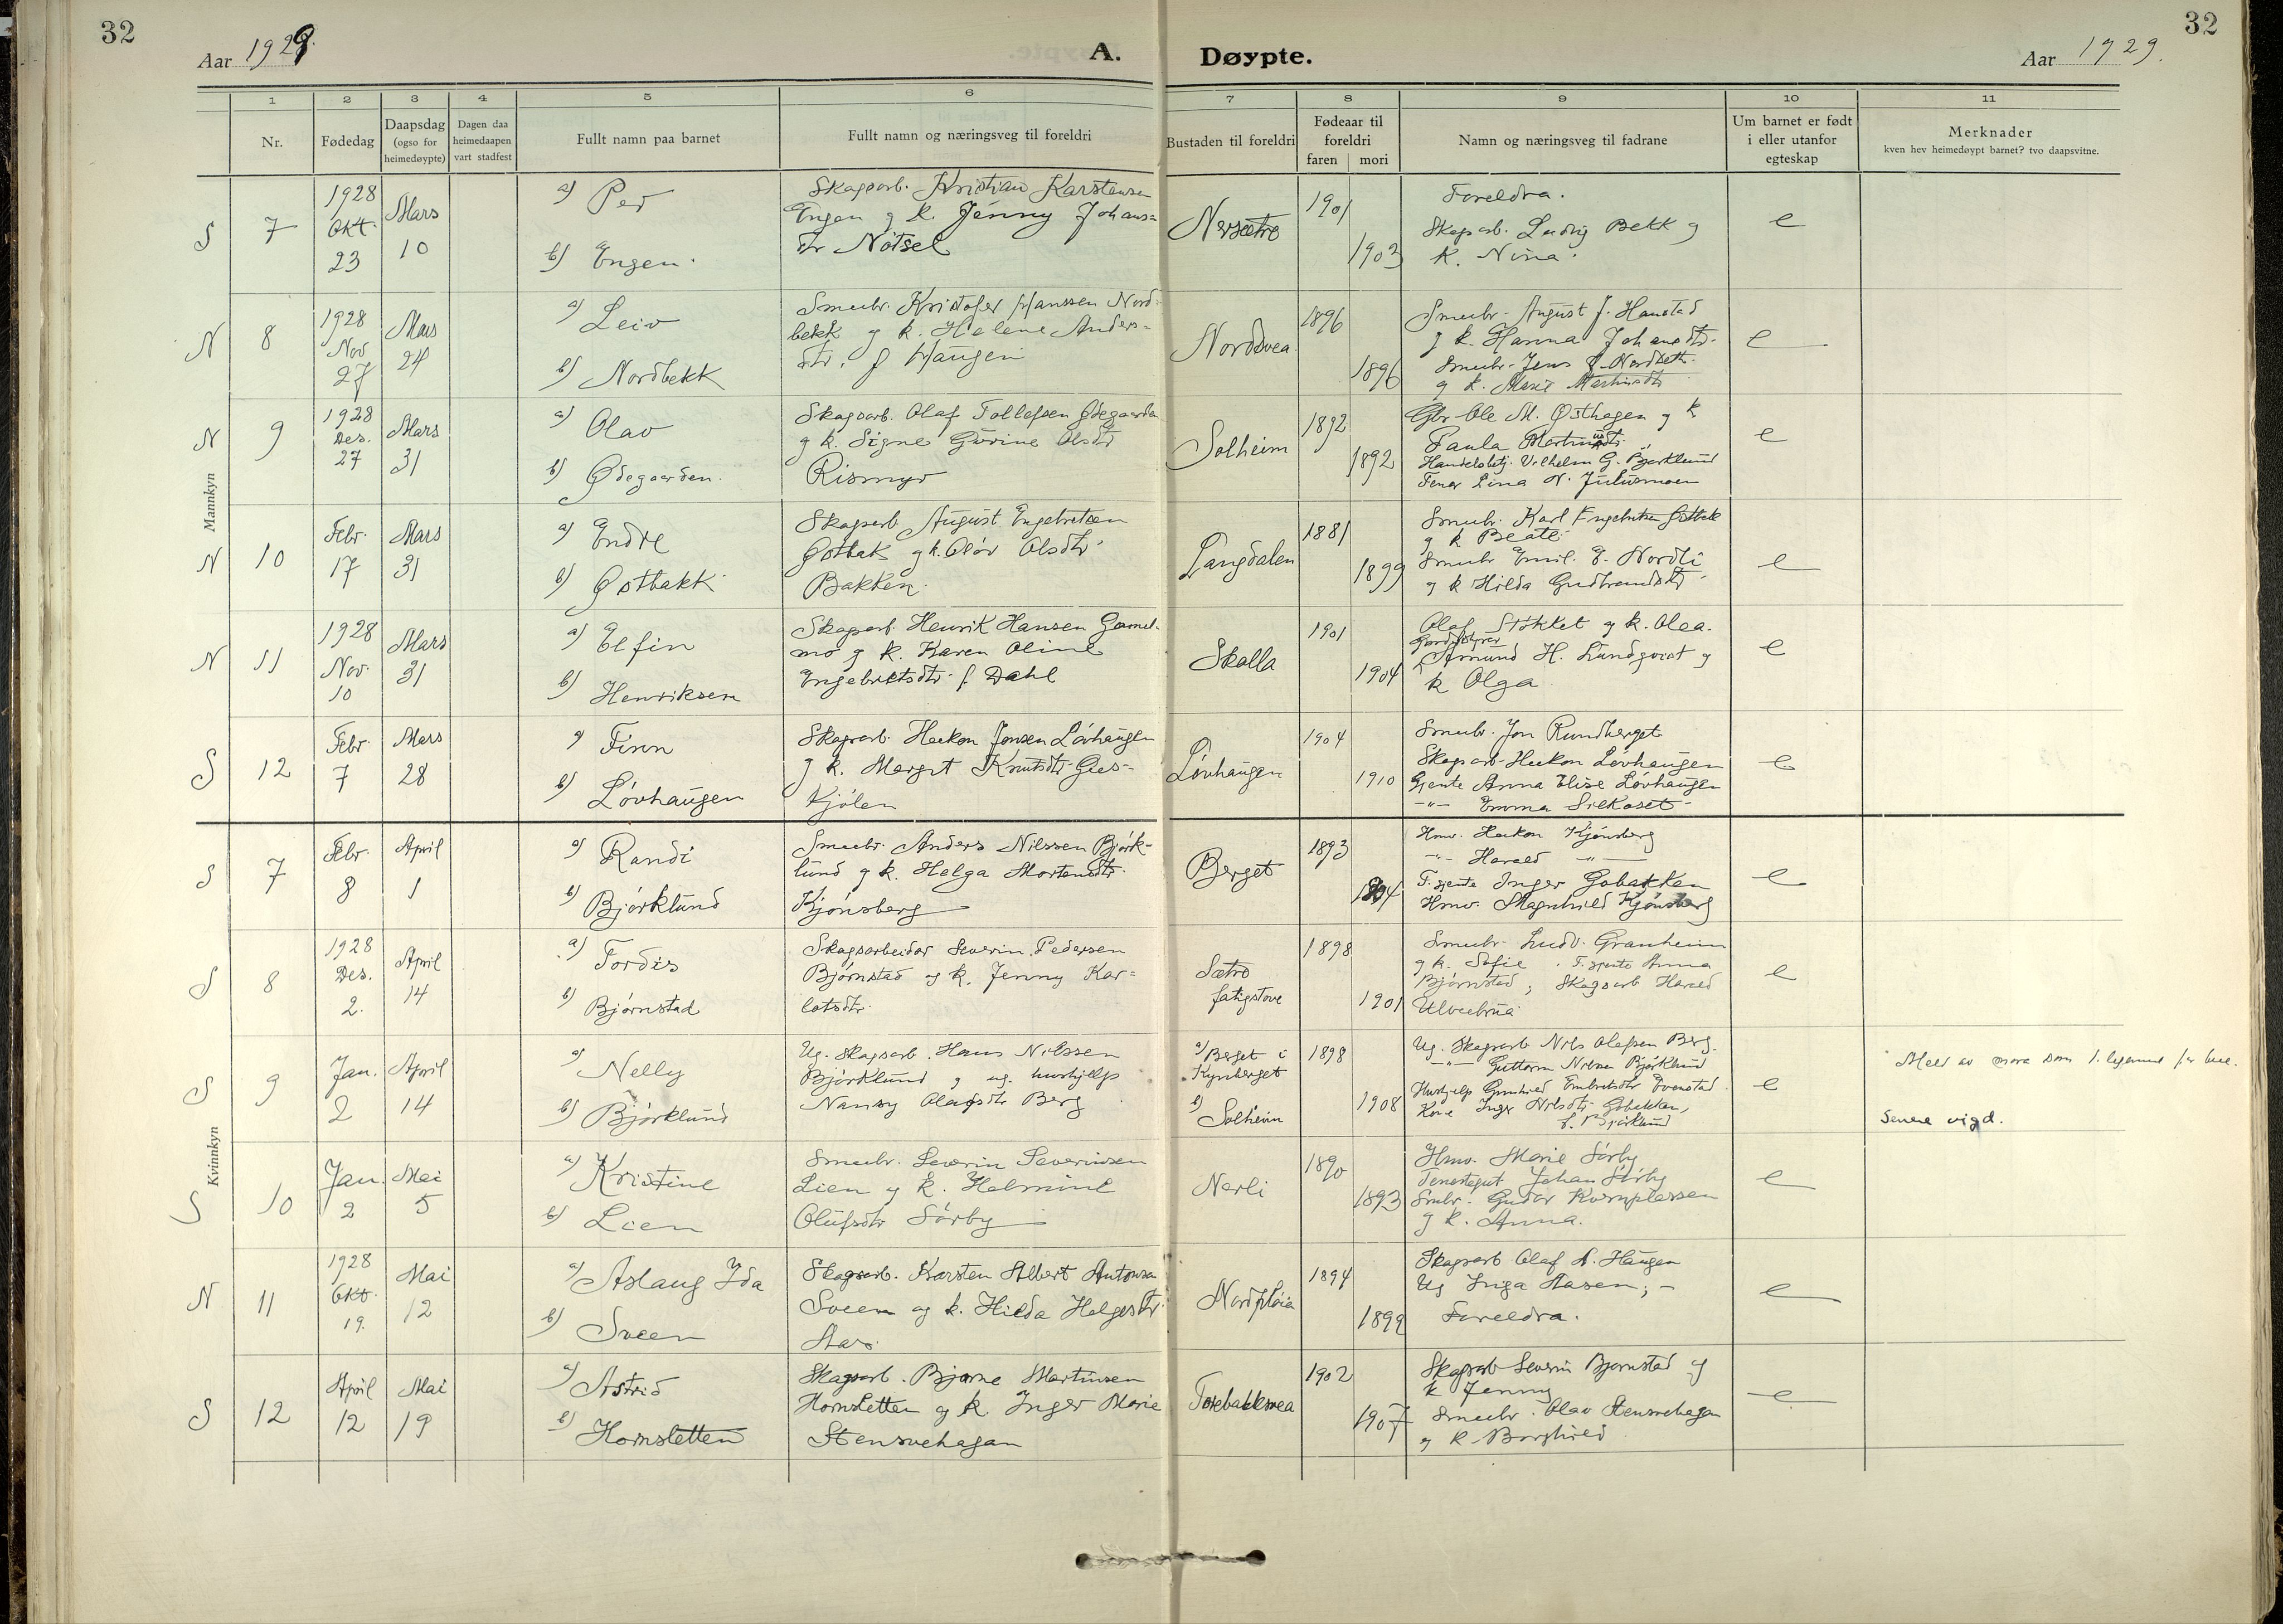 32
Aar 1929.
A.
Døypte.
Aar 1929.
32
1
2
3
4
5
6
7
8
9
10
11
Nr.
Fødedag
Daapsdag
(ogso for
heimedøypte)
Dagen daa
heimedaapen
vart stadfest
Fullt namn paa barnet
Fullt namn og næringsveg til foreldri
Bustaden til foreldri
Fødeaar til
foreldri
faren mori
Namn og næringsveg til fadrane
Um barnet er født
i eller utanfor
egteskap
Merknader
kven hev heimedøypt barnet? tvo daapsvitne.
Mannkyn
S 7
1928
Okt.
23
Mars
10
a) Per
b) Engen.
Skogsarb. Kristian Karstensen
Engen g k. Jenny Johans=
dtr Nötsel
Nersætre
1901
1903
Foreldra.
Skogsarb. Ludvig Bekk g
k. Nina.
e
N 8
1928
Nov
27
Mars
24
a) Leiv
b) Nordbekk
Smeubr. Kristofer Hanssen Nord-
bekk g k. Helene Anders-
dtr. f Haugen
Nordsvea
1896
1896
Smeubr. August J. Hanstad
g k. Hanna Johansdtr.
Smeubr. Jens
g k. Marie Martinsdtr
e
N 9
1928
Des.
27
Mars
31
a) Olav
b) Ødegaarden.
Skogsarb. Olaf Tollefsen Ødegaarden
g k. Signe Gurine Olsdtr
Rismyr
Solheim
1892
1892
Gbr Ole M. Østhagen g k
Paula Martinusdtr.
Handelsbetj. Vilhelm G. Bjørklund
Tenar Lina N. Juliusmoen
e
N 10
Febr.
17
Mars
31
a) Endre
b) Østbakk
Skogsarb August Engebretsen
Østbak g k. Olöv Olsdtr
Bakken.
Langdalen
1881
1899
Smeubr. Karl Engebretsen Østbak
g k Beate
Smeubr Emil. E. Nordli
g k Hilda Gudbrandsdtr
e
N 11
1928
Nov.
10
Mars
31
a) Elfin
b) Henriksen
Skogsarb. Henrik Hansen Gamel-
mo g k. Karen Oline
Engebretsdtr. f Dahl
Skolla
1901
1904
Olaf Støkket g k. Olea.
Amund H. Lundqvist g
k Olga
e
S 12
Febr.
7
Mars
28
a) Finn
b) Lövhaugen
Skogsarb. Haakon Jonsen Lövhaugen
g k. Margit Knutsdtr Graes-
kjölen
Lövhaugen
1904
1910
Smeubr. Jon Rundberget
Skogsarb. Haakon Lövhaugen
Gjente Anna Elise Lövhaugen
-"- Emma Silkoset
e
Kvinnkyn
S 7
Febr.
8
April
1
a) Randi
b) Björklund
Smeubr. Anders Nilssen Björk-
lund g k. Helga Mortensdtr.
Kjönsberg
Berget
1893
Hmv. Haakon Kjönsberg
-"- Harald -"-
T. gjente Inger Gobakken
Hmv. Magnhild Kjönsberg
e
S 8
1928
Des.
2.
April
14
a) Tordis
b) Björnstad
Skogsarbeidar Severin Pedersen
Björnstad og k. Jenny Kar=
lotsdtr.
Sætre
fatigstove
1898
1901
Smeubr. Ludv. Granheim
g k. Sofie . T. gjente Anna
Björnstad; Skogsarb Harald
Ulvedrua
e
S 9
Jan.
2
April
14
a) Nelly
b) Björklund
Ug. Skogsarb. Hans Nilssen
Björklund g ug. hushjelp
Nancy Olafsdtr Berg
a) Berget i
Kynberget
b) Solheim
1898
1908
Ug. Skogsarb Nils Olafsen Berg.
-"- Guttorm Nilsen Björklund
Hushjelp Gunhild Embretsdtr Evenstad
Kone Inger Nilsdtr Gobakken,
f. Björklund
e
Meld av mora som
Senere vigd.
S 10
Jan.
2
Mai
5
a) Kristine
b) Lien
Smeubr. Severin Severinsen
Lien g k. Helmine
Olufsdtr Sörby
Nerli
1890
1893
Hmv. Marie Sörby
Tenestegut Johan Sörby
Smbr. Gudar Kvernplassen
g k. Anna.
e
N 11
1928
Okt.
19.
Mai
12
a) Aslaug Ida
b) Sveen
Skogsarb. Karsten Albert Antonsen
Sveen og k. Hilda Helgesdtr
Aas.
Nordfløia
1894
1899
Skogsarb Olaf A. Haugen
Ug Inga Aasen; -
Foreldra.
e
S 12
April
12
Mai
19
a) Astrid
b) Hornsletten
Skogsarb. Bjarne Martinsen
Hornsletten g k. Inger Marie
Stensvehagan
Torebakksvea
1902
1907
Skogsarb Severin Bjørnstad g
k Jenny
Smeubr. Olav Stensvehagan
g k Borghild
e